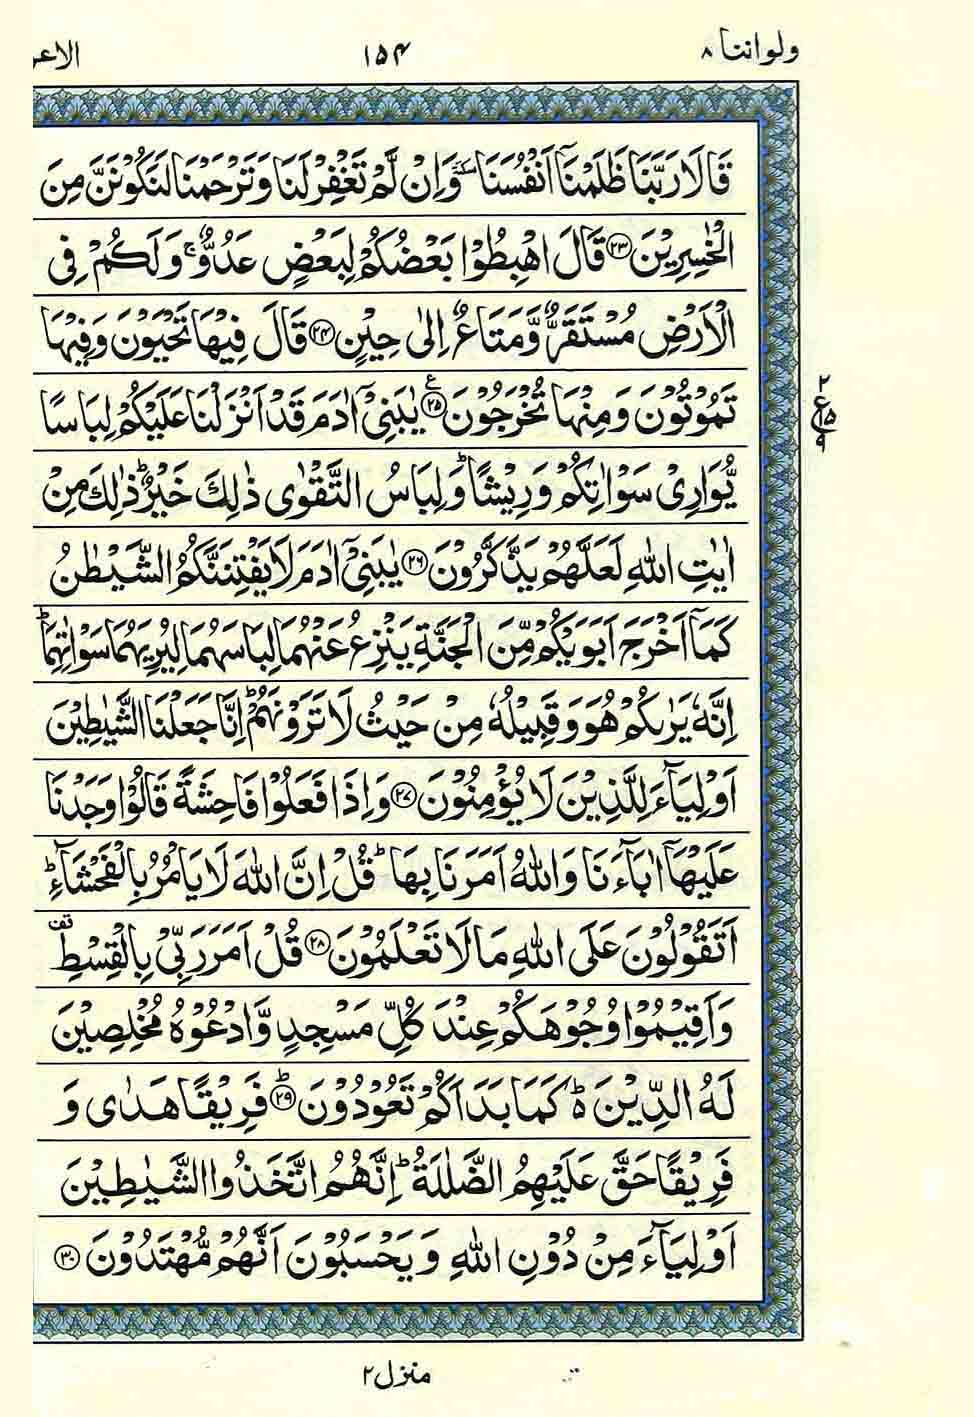 ولواننا ۸
۱۵۴
الاعر
قَالَا رَبَّنَا ظَلَمْنَاۤ اَنْفُسَنَا ٚ وَاِنْ لَّمْ تَغْفِرْ لَنَا وَتَرْحَمْنَا لَنَكُوْنَنَّ مِنَ
الْخٰسِرِيْنَ ﴿۲۳﴾ قَالَ اهْبِطُوْا بَعْضُكُمْ لِبَعْضٍ عَدُوٌّ ۚ وَلَكُمْ فِى
الْاَرْضِ مُسْتَقَرٌّ وَّمَتَاعٌ اِلٰى حِيْنٍ ﴿۲۴﴾ قَالَ فِيْهَا تَحْيَوْنَ وَفِيْهَا
تَمُوْتُوْنَ وَمِنْهَا تُخْرَجُوْنَ ﴿۲۵﴾ ع يٰبَنِىْۤ اٰدَمَ قَدْ اَنْزَلْنَا عَلَيْكُمْ لِبَاسًا
۲ ع ۱۵ ۹
يُّوَارِىْ سَوْاٰتِكُمْ وَرِيْشًا ؕ وَلِبَاسُ التَّقْوٰى ذٰلِكَ خَيْرٌ ؕ ذٰلِكَ مِنْ
اٰيٰتِ اللّٰهِ لَعَلَّهُمْ يَذَّكَّرُوْنَ ﴿۲۶﴾ يٰبَنِىْۤ اٰدَمَ لَا يَفْتِنَنَّكُمُ الشَّيْطٰنُ
كَمَاۤ اَخْرَجَ اَبَوَيْكُمْ مِّنَ الْجَنَّةِ يَنْزِعُ عَنْهُمَا لِبَاسَهُمَا لِيُرِيَهُمَا سَوْاٰتِهِمَا ؕ
اِنَّهٗ يَرٰىكُمْ هُوَ وَقَبِيْلُهٗ مِنْ حَيْثُ لَا تَرَوْنَهُمْ ؕ اِنَّا جَعَلْنَا الشَّيٰطِيْنَ
اَوْلِيَآءَ لِلَّذِيْنَ لَا يُؤْمِنُوْنَ ﴿۲۷﴾ وَاِذَا فَعَلُوْا فَاحِشَةً قَالُوْا وَجَدْنَا
عَلَيْهَاۤ اٰبَآءَنَا وَاللّٰهُ اَمَرَنَا بِهَا ؕ قُلْ اِنَّ اللّٰهَ لَا يَاْمُرُ بِالْفَحْشَآءِ ؕ
اَتَقُوْلُوْنَ عَلَى اللّٰهِ مَا لَا تَعْلَمُوْنَ ﴿۲۸﴾ قُلْ اَمَرَ رَبِّىْ بِالْقِسْطِ قف
وَاَقِيْمُوْا وُجُوْهَكُمْ عِنْدَ كُلِّ مَسْجِدٍ وَّادْعُوْهُ مُخْلِصِيْنَ
لَهُ الدِّيْنَ ؕ۬ كَمَا بَدَاَكُمْ تَعُوْدُوْنَ ؕ ﴿۲۹﴾ فَرِيْقًا هَدٰى وَ
فَرِيْقًا حَقَّ عَلَيْهِمُ الضَّلٰلَةُ ؕ اِنَّهُمُ اتَّخَذُوا الشَّيٰطِيْنَ
اَوْلِيَآءَ مِنْ دُوْنِ اللّٰهِ وَيَحْسَبُوْنَ اَنَّهُمْ مُّهْتَدُوْنَ ﴿۳۰﴾
منزل ۲